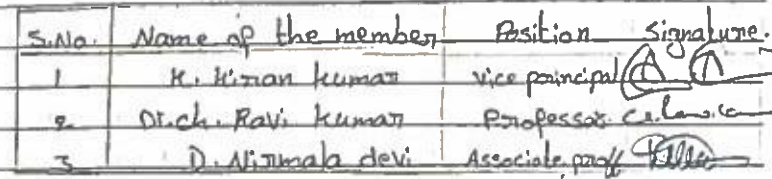 S.No. Name of the member Position Signature.
1 K. Kiran kumar vice principal
2 Dr.ch. Ravi kumar Professor
3 D. Nirmala devi Associate proff